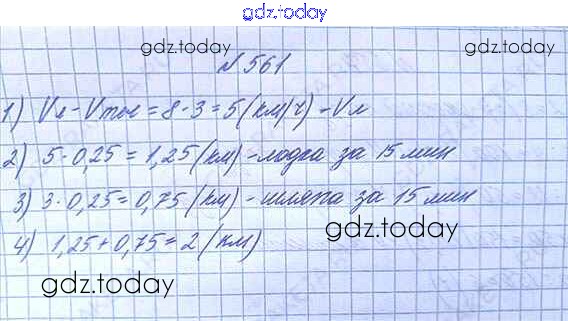 gdz.today
gdz.today gdz.today
№ 561
1) Vл - Vтеч = 8 - 3 = 5 (км/ч) - Vл
2) 5 · 0,25 = 1,25 (км) - лодка за 15 мин
3) 3 · 0,25 = 0,75 (км) - шляпа за 15 мин
gdz.today
4) 1,25 + 0,75 = 2 (км)
gdz.today